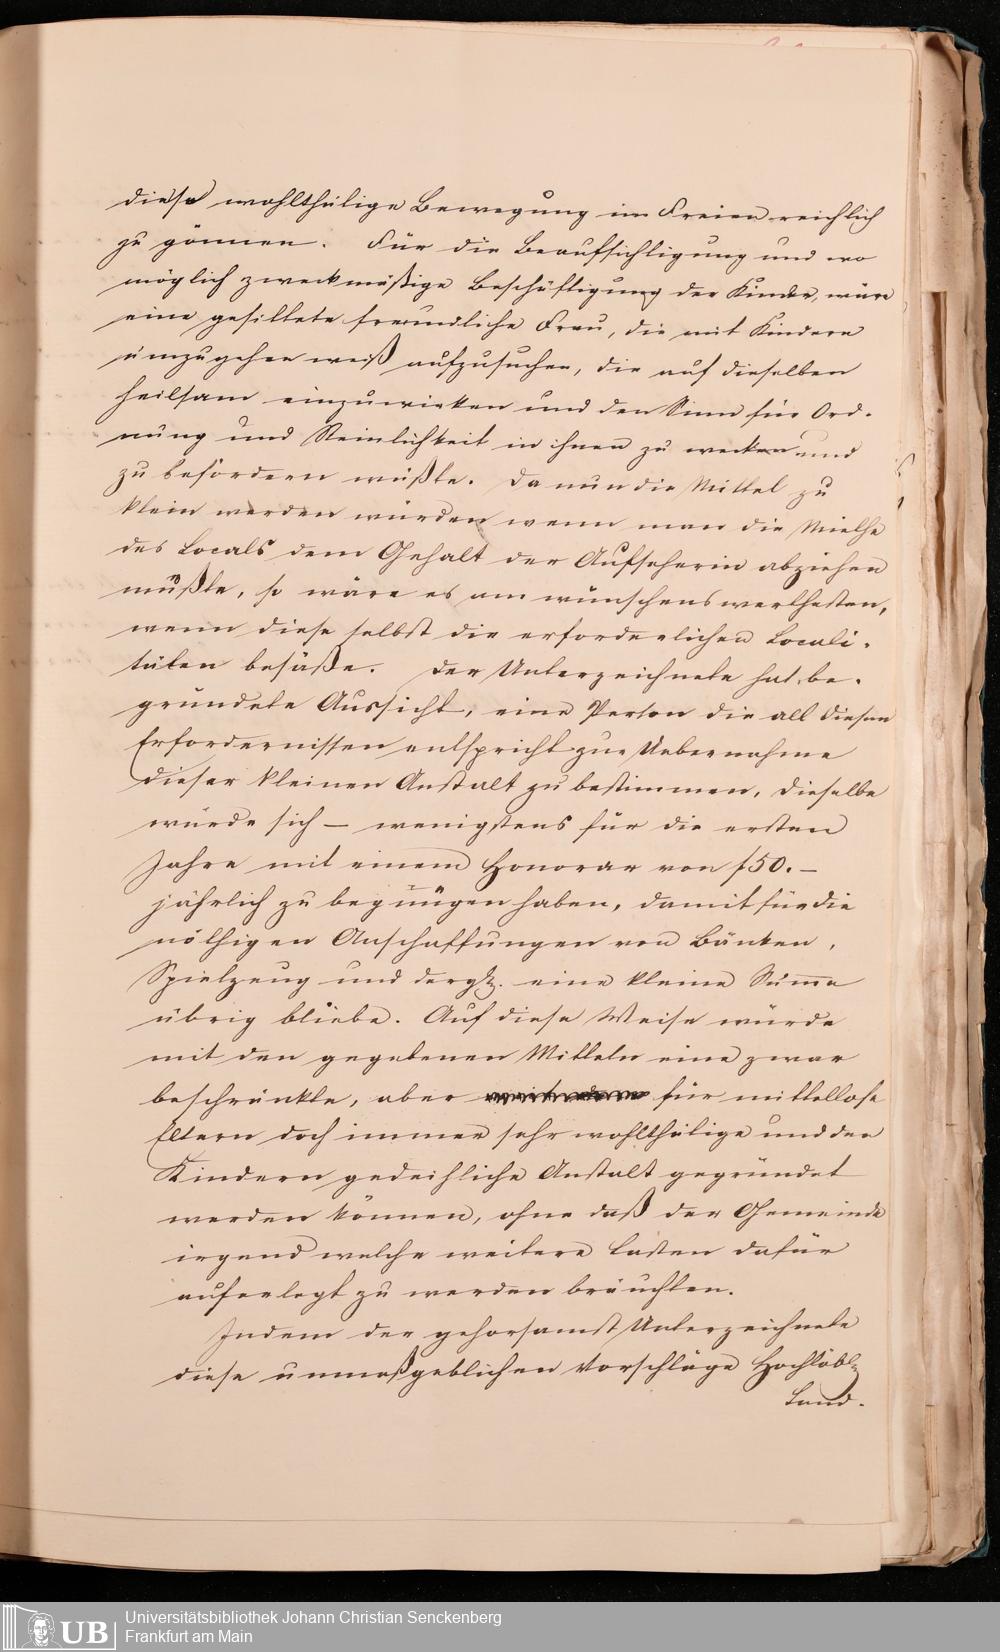 diese wohlthätige Bewegung im Freien reichlich
zu gönnen. Für die Beaufsichtigung und wo
möglich zweckmäßige Beschäftigung der Kinder, wäre
eine gesittete freundliche Frau, die mit Kindern
umzugehen weiß aufzusuchen, die auf dieselben
heilsam einzuwirken und den Sinn für Ord-
nung und Reinlichkeit in ihnen zu wecken und
zu befördern wüßte. Da nun die Mittel zu
klein werden würden wenn man die Miethe
des Locals dem Gehalt der Aufseherin abziehen
müßte, so wäre es am wünschenswerthesten,
wenn diese selbst die erforderlichen Locali-
täten besäße. Der Unterzeichnete hat be-
gründete Aussicht, eine Person die all diesen
Erfordernissen entspricht zur Uebernahme
dieser kleinen Anstalt zu bestimmen, dieselbe
würde sich — wenigstens für die ersten
Jahre mit einem Honorar von f 50. —
jährlich zu begnügen haben, damit für die
nöthigen Anschaffungen von Bänken,
Spielzeug und dergl. eine kleine Summe
übrig bliebe. Auf diese Weise würde
mit den gegebenen Mitteln eine zwar
beschränkte, aber für mittellose
Eltern doch immer sehr wohlthätige und den
Kindern gedeihliche Anstalt gegründet
werden können, ohne daß der Gemeinde
irgend welche weitere Lasten dafür
auferlegt zu werden bräuchten.
Indem der gehorsamst Unterzeichnete
diese unmaßgeblichen Vorschläge Hochlöbl.
Land-
UB
Universitätsbibliothek Johann Christian Senckenberg
Frankfurt am Main